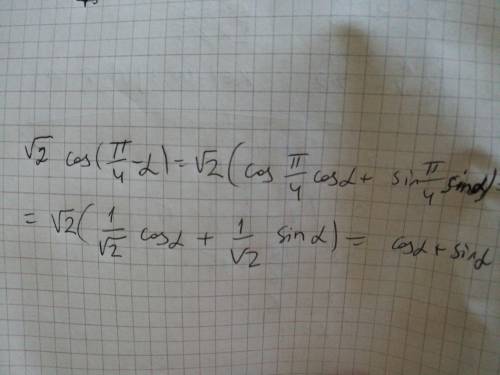 √2 cos(π/4 - α) = √2 (cos π/4 cos α + sin π/4 sin α) =
= √2 (1/√2 cos α + 1/√2 sin α) = cos α + sin α